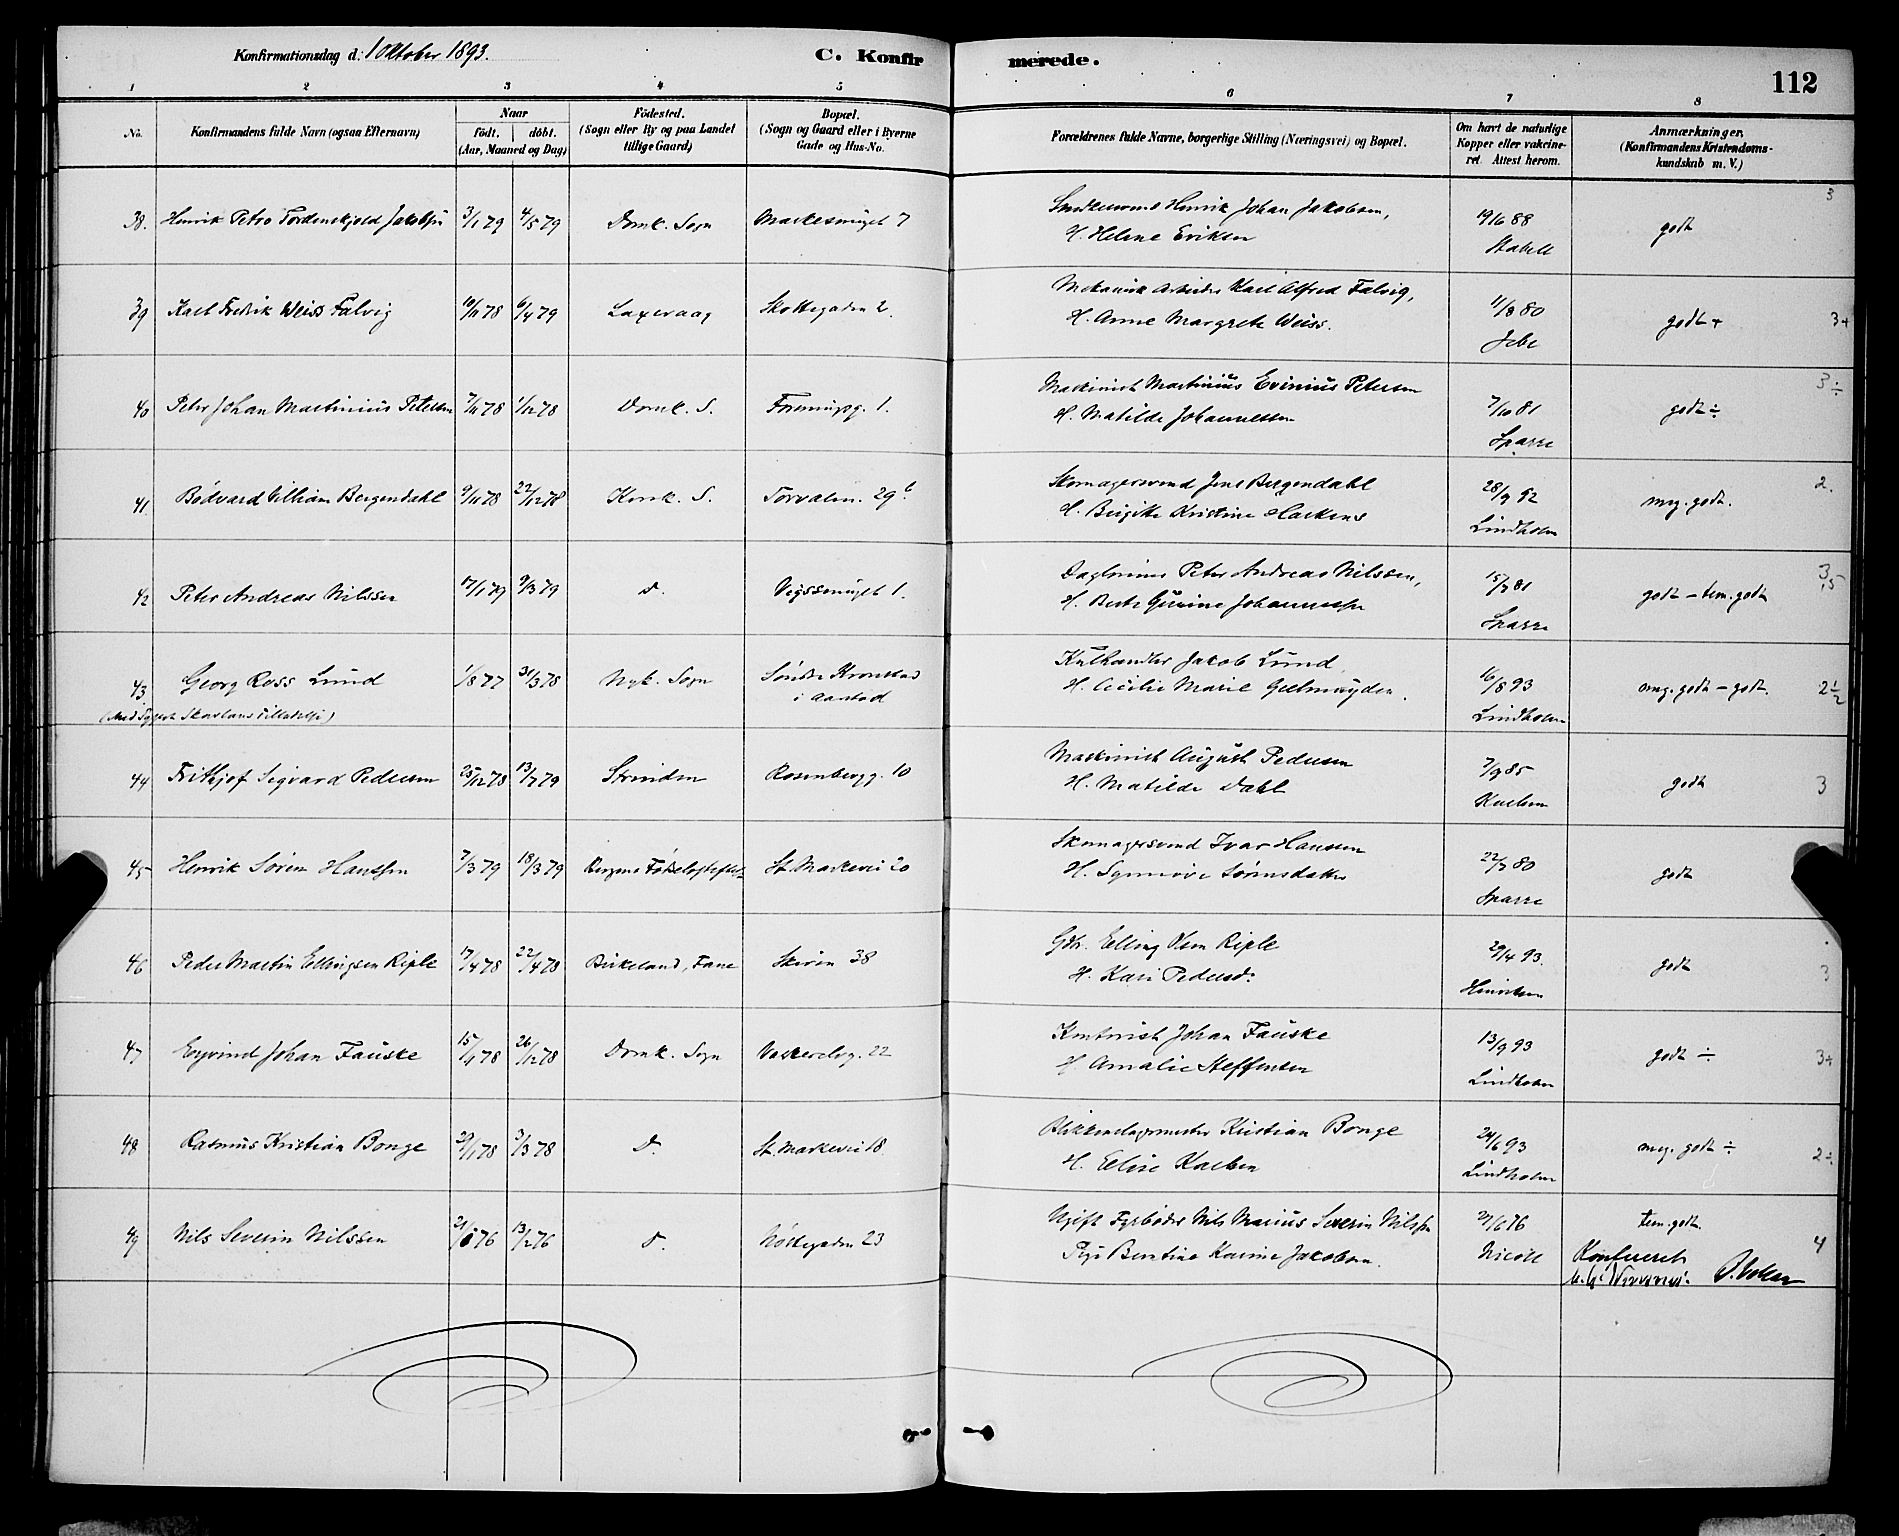 Konfirmationsdag d. 1 Oktober 1893.
C. Konfirmerede.
112
1 2 3 4 5 6 7 8
No.
Konfirmandens fulde Navn (ogsaa Efternavn)
Naar
födt. döbt.
(Aar, Maaned og Dag)
Födested.
(Sogn eller By og paa Landet
tillige Gaard)
Bopæl.
(Sogn og Gaard eller i Byerne
Gade og Hus-No.
Forældrenes fulde Navne, borgerlige Stilling (Næringsvei) og Bopæl.
Om havt de naturlige
Kopper eller vakcine-
ret. Attest herom.
Anmærkninger,
(Konfirmandens Kristendoms-
kundskab m. V.)
38. Henrik Petro Tordenskjold Jakobsen 3/1 79 4/5 79 Domk. Sogn Markesmuget 7
Henrik Johan Jakobsen,
H. Helene Eriksen
19/6 88
Stabell
godt
3
39 Karl Fredrik Weiss Falvig 10/11 78 6/4 79 Laxevaag Skottegaden 2.
Mekanisk Arbeider Karl Alfred Falvig,
H. Anne Margrete Weiss.
11/8 80
Jebe
godt +
3+
40 Peter Johan Martinius Petersen 7/11 78 1/12 78 Domk. S. Foreningsg. 1.
Maskinist Martinius Evinius Petersen
H. Matilde Johannessen
7/10 81
Sparre
godt ÷
3÷
41. Bødvard William Bergendahl 9/11 78 22/12 78 Korsk. S. Torvalm. 29 b.
Skomagersvend Jens Bergendahl
H. Birgitte Kristine
28/9 92
Lindholm
meg. godt.
2.
42 Peter Andreas Nilssen 17/1 79 9/3 79 d. Vegssmuget 1.
Peter Andreas Nilssen,
H. Berte Gurine Johannessen
15/7 81
Sparre
godt - tem. godt
3,5
43 Georg Ross Lund 1/8 77 31/3 78 Nyk. Sogn Søndre Kronstad
i Aarstad
Kulhandler Jakob Lund
H. Cecilie Marie Geelmuyden.
16/8 93
Lindholm
meg. godt - godt.
2 1/2
44 Frithjof Sigvard Pedersen 25/12 78 13/7 79 Strinden Rosenbergg. 10
Maskinist August Pedersen
H. Matilde Dahl
7/9 85
godt
3
45 Henrik Søren Hanssen 7/3 79 18/3 79 Bergens Fødselsstiftelse St. Markevei 20
Skomagersvend Ivar Hanssen
H. Synnøve Sørensdatter
22/7 80
Sparre
godt
46 Peder Martin Ellingsen Riple 17/4 78 22/4 78 Birkeland, Fane Skiven 38
Gdr. Elling Olsen Riple
H. Kari Pedersd.
29/4 93.
Hinrichsen
godt
3
47 Eyvind Johan Fauske 15/11 78 26/12 78 Domk. Sogn Vaskerelvg. 22
Kontorist Johan Fauske
H. Amalie Steffensen
13/9 93
Lindholm
godt ÷
3÷
48 Rasmus Kristian Bonge 29/1 78 3/3 78 D. St. Markevei 18.
Blikkenslagermester Kristian Bonge
H. Elise Karlsen
24/6 93
Lindholm
meg. godt ÷
2÷
49 Nils Severin Nilssen 13/2 76 d. Nøstegaden 23
Ugift Fyrbøder Nils Marius Severin Nilssen
Pige Bentine Karine Jakobsen.
27/6 76
Nicoll
tem. godt.
4